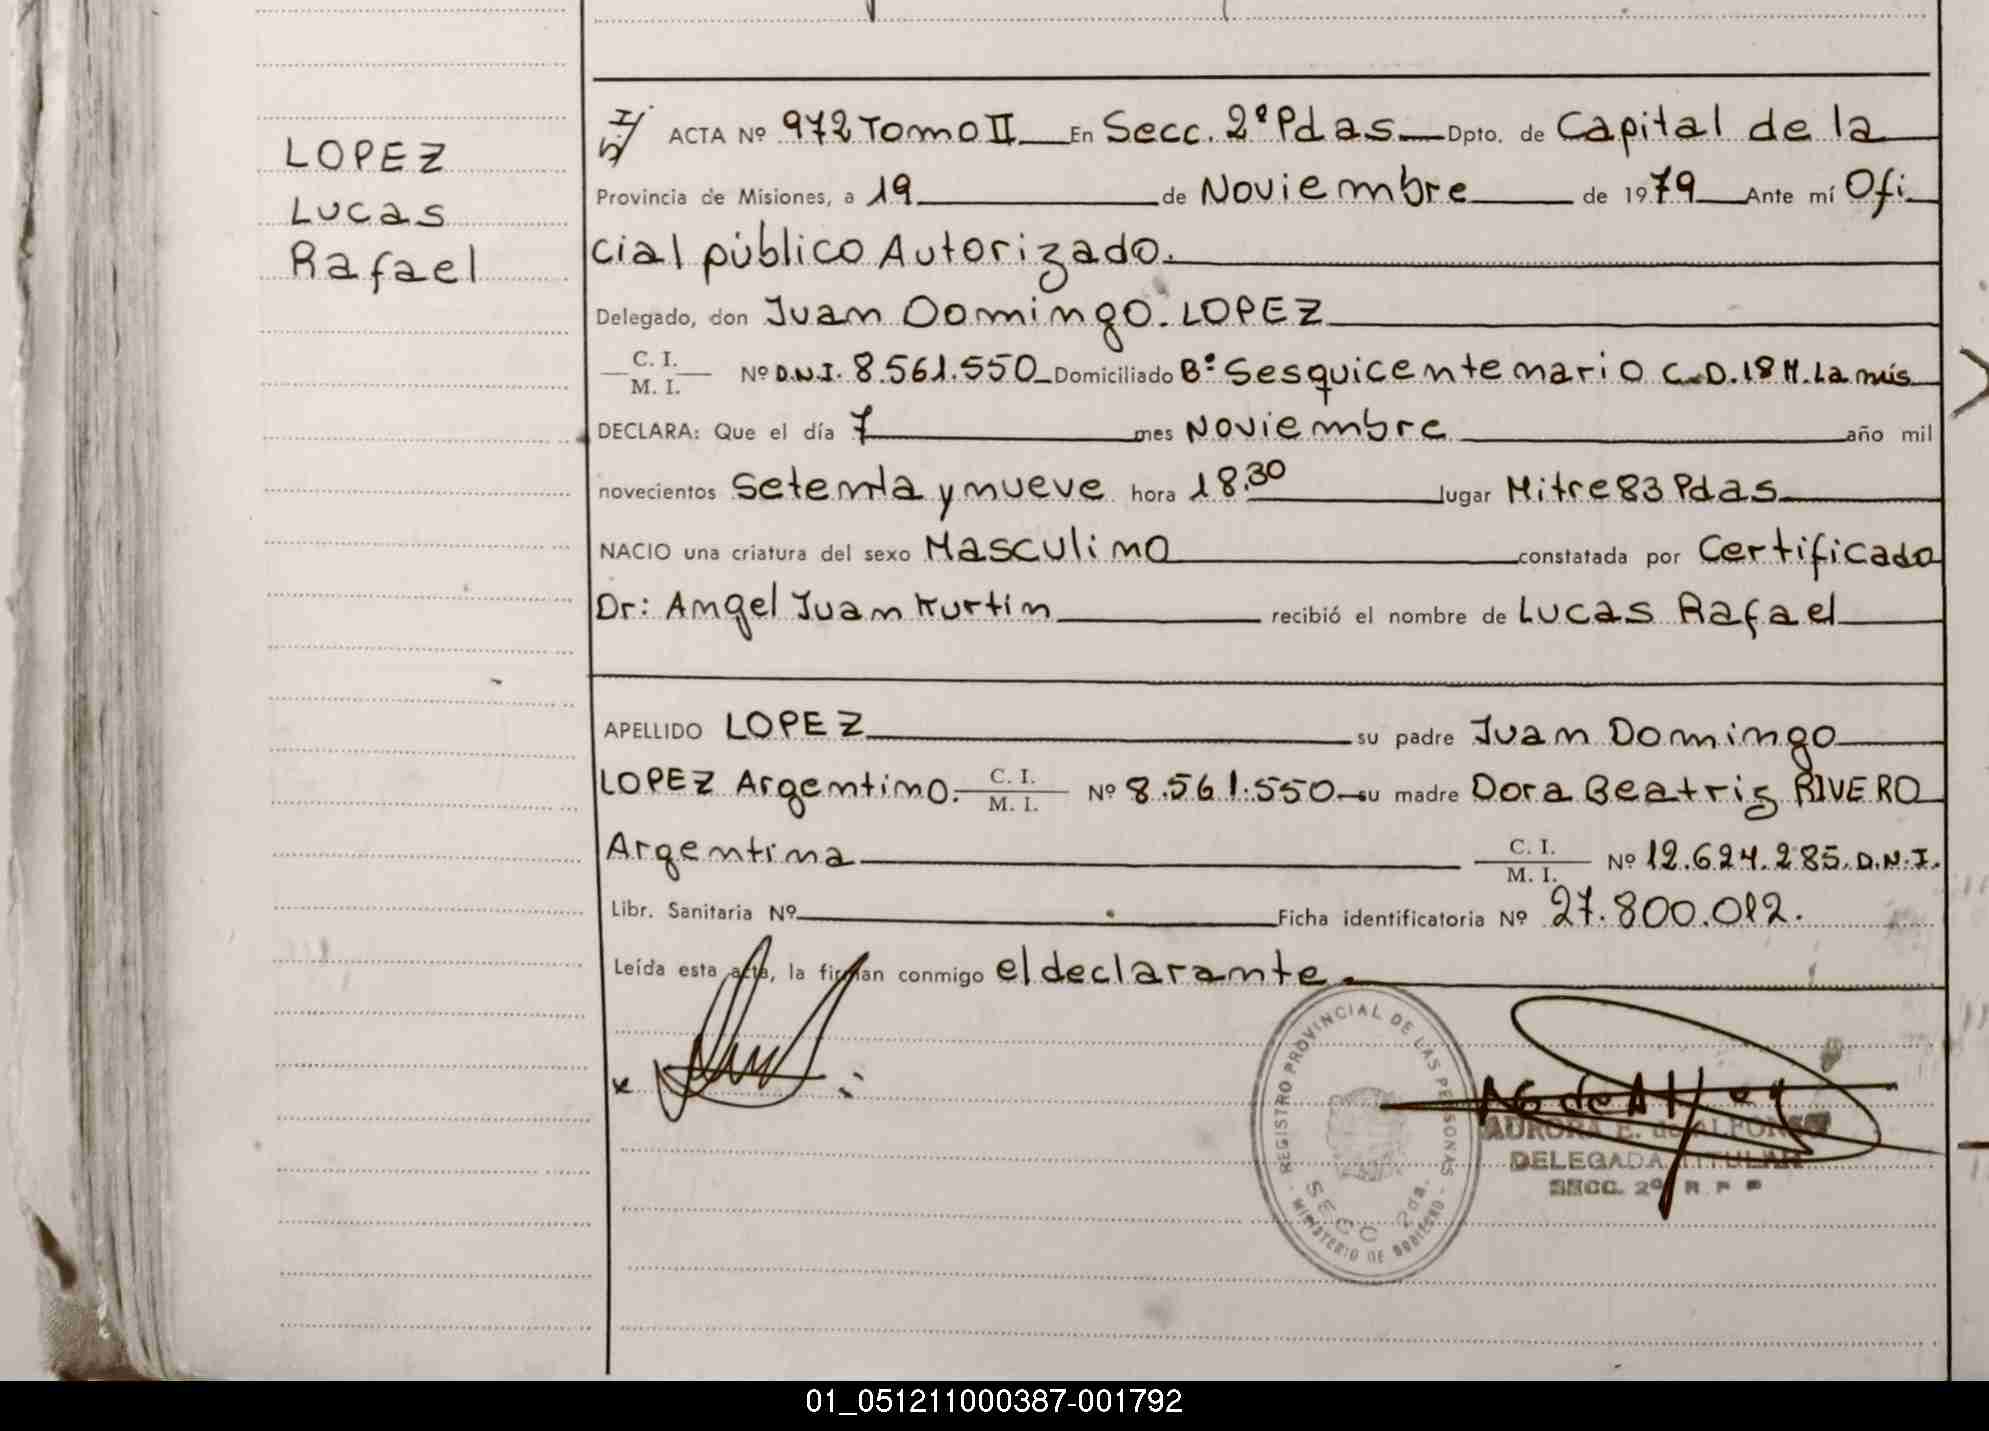 LOPEZ
Lucas
Rafael
ACTA Nº 972 Tomo II En Secc. 2º Pdas Dpto. de Capital de la
Provincia de Misiones, a 19 de Noviembre de 1979 Ante mí Ofi
cial público Autorizado.
Delegado, don Juan Domingo LOPEZ
C. I.
M. I.
Nº D.N.I. 8.561.550 Domiciliado Bº Sesquicentenario C.D.18 M. La mis
DECLARA: Que el día 7 mes Noviembre año mil
novecientos Setenta y nueve hora 18.30 lugar Mitre 83 Pdas
NACIO una criatura del sexo Masculino constatada por Certificado
Dr: Angel Juan Kurtin recibió el nombre de Lucas Rafael
APELLIDO LOPEZ su padre Juan Domingo
LOPEZ Argentino. C. I. M. I. Nº 8.561.550 su madre Dora Beatriz RIVERO
Argentina C. I. M. I. Nº 12.624.285. D.N.I.
Libr. Sanitaria Nº Ficha identificatoria Nº 27.800.012.
Leída esta acta, la firman conmigo el declarante.
REGISTRO PROVINCIAL DE LAS PERSONAS
SECC 2da.
MINISTERIO DE GOBIERNO
AURORA E. de ALFONSO
DELEGADA TITULAR
SECC. 2º R P P
01_051211000387-001792